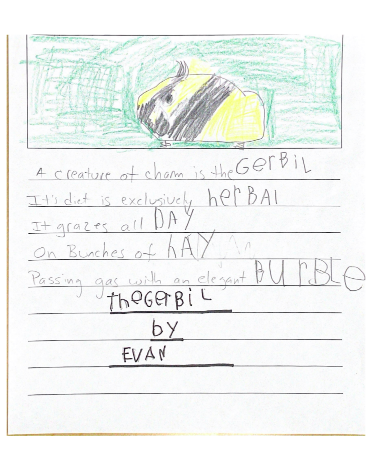 A creature of charm is the GERBIL
It's diet is exclusively herBAl
It grazes all DAY
On Bunches of hAY
Passing gas with an elegant BUrBLe
theGerBiL
by
EVAN